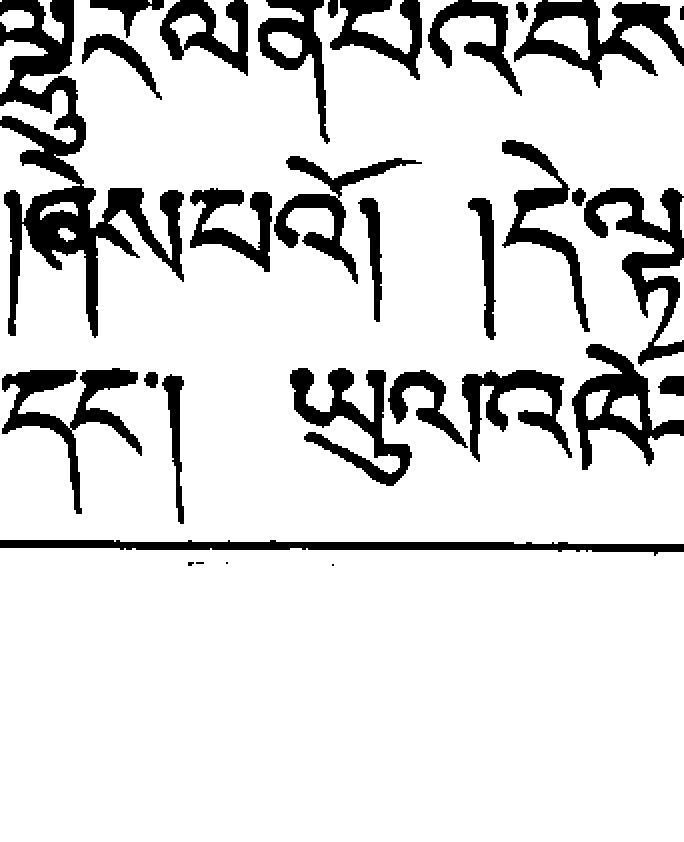 ལྷུར་ལེན་པའི་བས
།ཞེས་པའོ། །དེ་ལྟ
དང་། ཡུལ་འཁོ